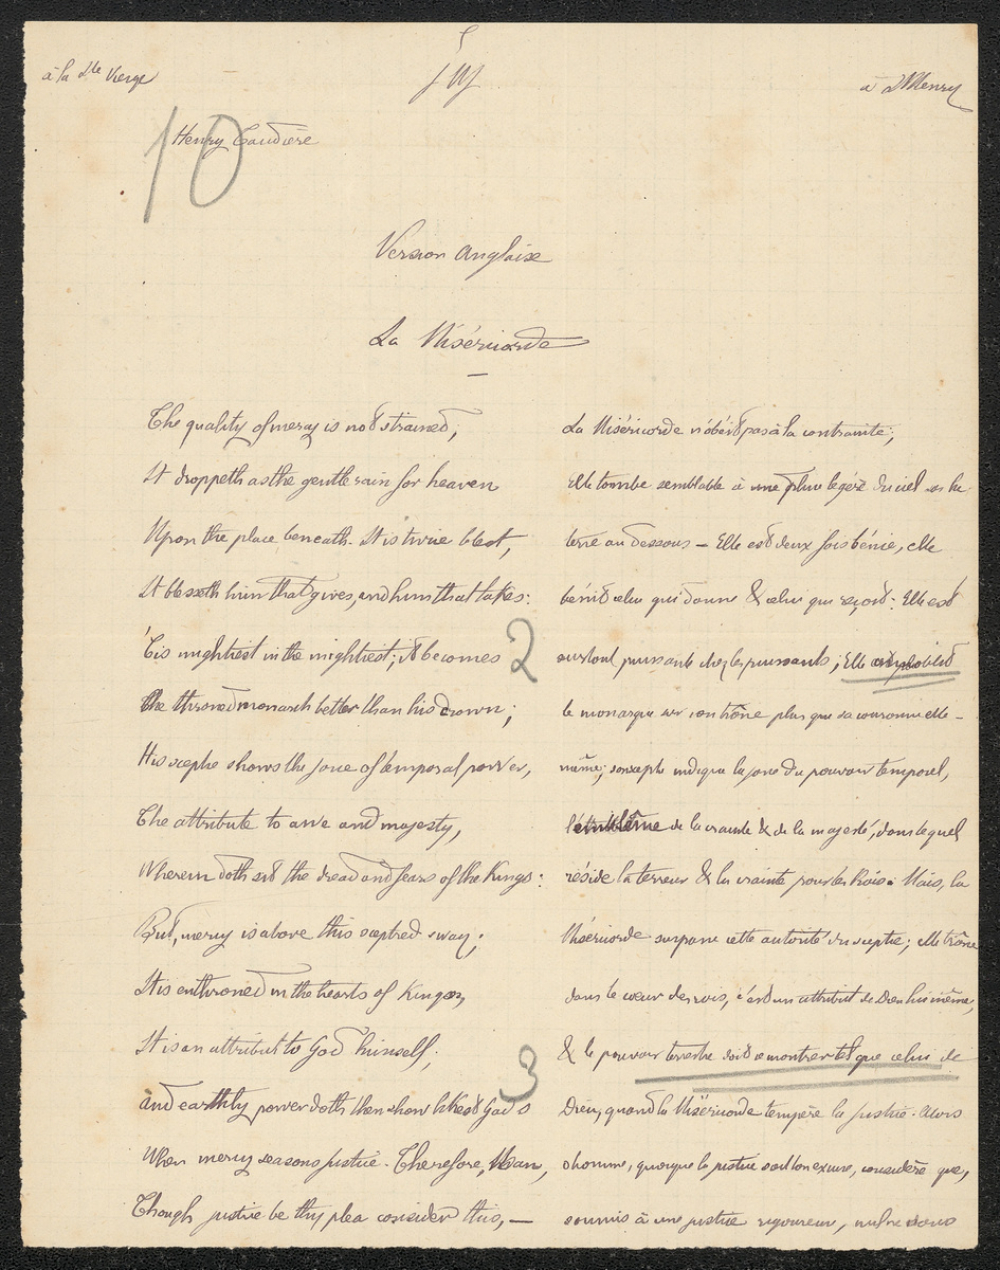 à la Ste Vierge
J M J
à St Henry
10
Henry Gaudière
Version Anglaise
La Miséricorde
The quality of mercy is not strained,
It droppeth as the gentle rain for heaven
Upon the place beneath. It is twice blest,
It blesseth him that gives, and him that takes:
'Tis mightiest in the mightiest; it becomes
the throned monarch better than his crown;
His scepter shows the force of temporal power,
The attribute to awe and majesty,
Wherein doth sit the dread and fears of the Kings:
But, mercy is above this sceptred sway;
It is enthroned in the hearts of Kings,
It is an attribut to God himself;
And earthly power doth then show likest God's
When mercy seasons justice. Therefore, Man,
Though justice be thy plea consider this, —
2
3
La Miséricorde n'obéit pas à la contrainte;
elle tombe semblable à une pluie légère du ciel sur la
terre au dessous – Elle est deux fois bénie, elle
bénit celui qui donne & celui qui reçoit: Elle est
surtout puissante chez les puissants; Elle
le monarque sur son trône plus que sa couronne elle-
même; son sceptre indique la force du pouvoir temporel,
l'emblème de la crainte & de la majesté, dans lequel
réside la terreur & la crainte pour les Rois. Mais, la
Miséricorde surpasse cette autorité du sceptre; elle trône
dans le cœur des rois, c'est un attribut de Dieu lui même,
& le pouvoir terrestre doit se montrer tel que celui de
Dieu, quand la Miséricorde tempère la justice. Alors
o homme, quoique la justice soit ton excuse, considère que,
soumis à une justice rigoureuse, nul ne dans